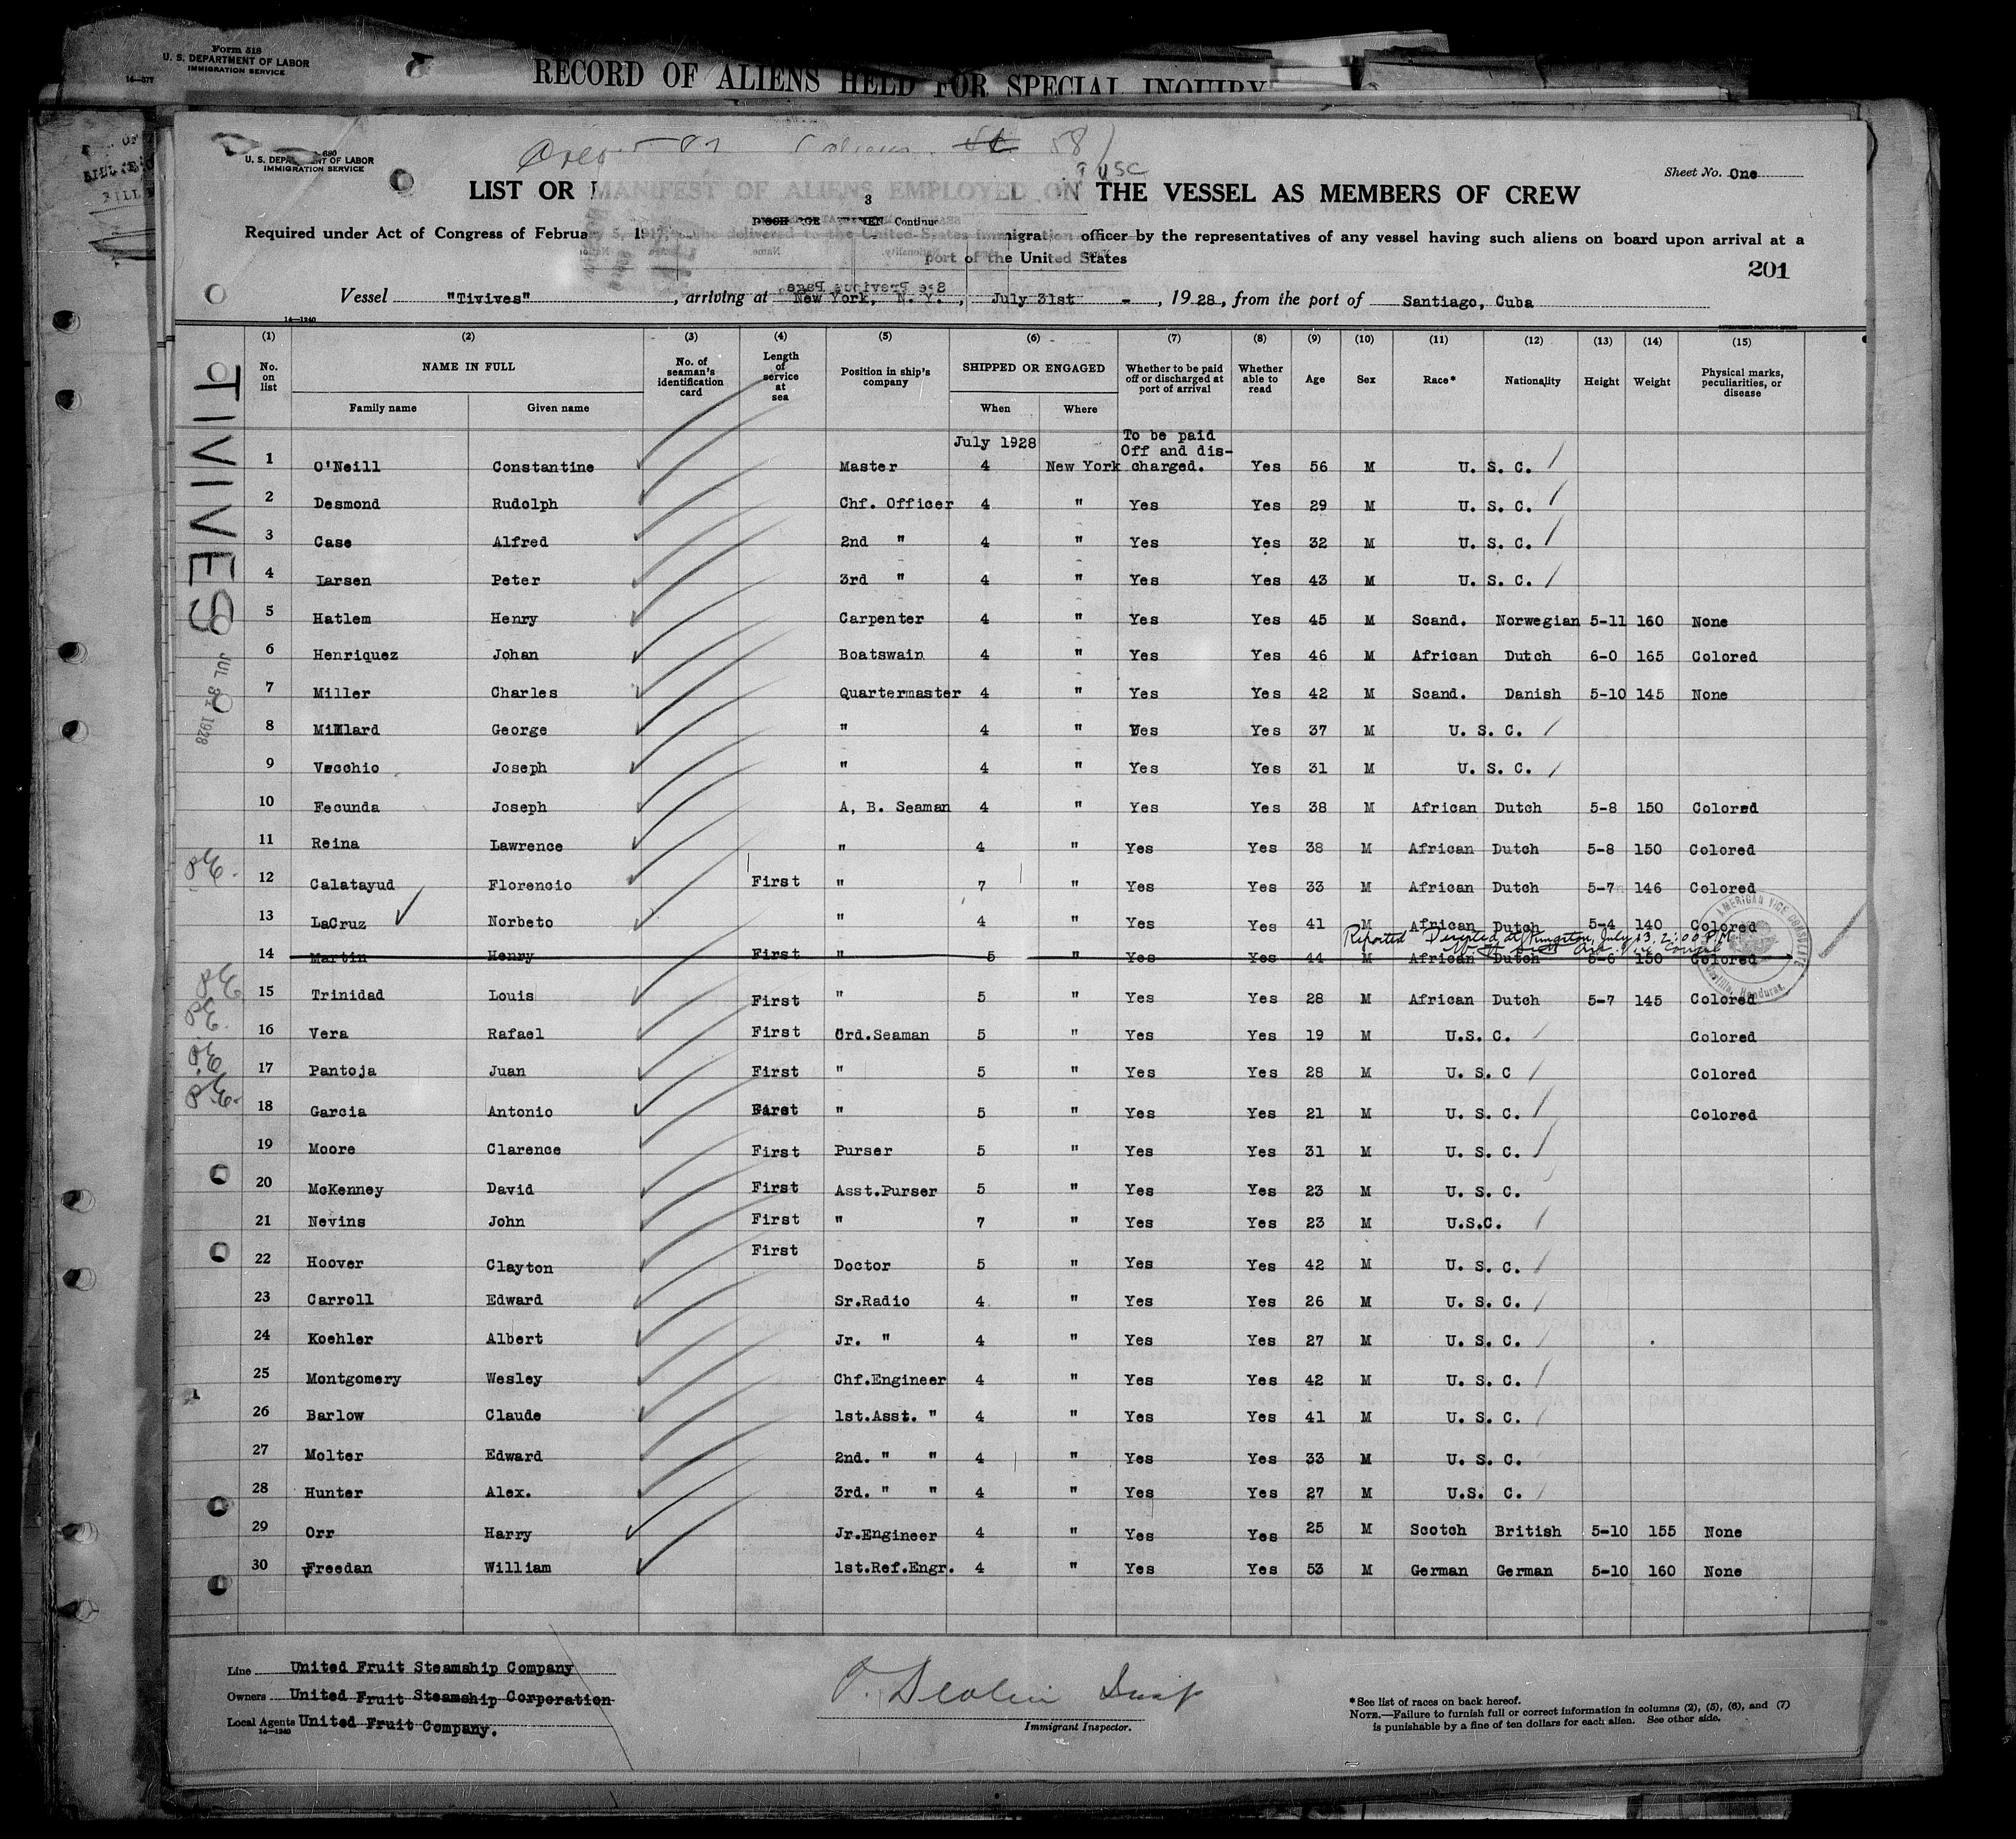 Form 518
U. S. DEPARTMENT OF LABOR
IMMIGRATION SERVICE
14—577
RECORD OF ALIENS HELD FOR SPECIAL INQUIRY
680
U. S. DEPARTMENT OF LABOR
IMMIGRATION SERVICE
58
USC
Sheet No. One
LIST OR MANIFEST OF ALIENS EMPLOYED ON THE VESSEL AS MEMBERS OF CREW
3
Required under Act of Congress of February 5, 1917, to be delivered to the United States immigration officer by the representatives of any vessel having such aliens on board upon arrival at a
port of the United States
201
See Previous Page
Vessel "Tivives", arriving at New York, N. Y., July 31st - , 1928, from the port of Santiago, Cuba
14—1240
TIVIVES
JUL 31 1928
(1) (2) (3) (4) (5) (6) (7) (8) (9) (10) (11) (12) (13) (14) (15)
No. on list NAME IN FULL No. of seaman's identification card Length of service at sea Position in ship's company SHIPPED OR ENGAGED Whether to be paid off or discharged at port of arrival Whether able to read Age Sex Race* Nationality Height Weight Physical marks, peculiarities, or disease
Family name Given name When Where
July 1928 To be paid
Off and dis-
1 O'Neill Constantine Master 4 New York charged. Yes 56 M U. S. C.
2 Desmond Rudolph Chf. Officer 4 " Yes Yes 29 M U. S. C.
3 Case Alfred 2nd " 4 " Yes Yes 32 M U. S. C.
4 Larsen Peter 3rd " 4 " Yes Yes 43 M U. S. C.
5 Hatlem Henry Carpenter 4 " Yes Yes 45 M Scand. Norwegian 5-11 160 None
6 Henriquez Johan Boatswain 4 " Yes Yes 46 M African Dutch 6-0 165 Colored
7 Miller Charles Quartermaster 4 " Yes Yes 42 M Scand. Danish 5-10 145 None
8 Millard George " 4 " Yes Yes 37 M U. S. C.
9 Vecchio Joseph " 4 " Yes Yes 31 M U. S. C.
10 Fecunda Joseph A, B. Seaman 4 " Yes Yes 38 M African Dutch 5-8 150 Colored
11 Reina Lawrence " 4 " Yes Yes 38 M African Dutch 5-8 150 Colored
P.E. 12 Calatayud Florencio First " 7 " Yes Yes 33 M African Dutch 5-7 146 Colored
13 LaCruz Norbeto " 4 " Yes Yes 41 M African Dutch 5-4 140 Colored
Reported Deserted at Kingston, July 13, 2:00 P.M.
Vice Consul
14 Martin Henry First " 5 " Yes Yes 44 M African Dutch 5-6 150 Colored
AMERICAN VICE CONSULATE
Castilla, Honduras.
P.E. 15 Trinidad Louis First " 5 " Yes Yes 28 M African Dutch 5-7 145 Colored
P.E. 16 Vera Rafael First Ord.Seaman 5 " Yes Yes 19 M U.S. C. Colored
P.E. 17 Pantoja Juan First " 5 " Yes Yes 28 M U. S. C Colored
P.E. 18 Garcia Antonio First " 5 " Yes Yes 21 M U. S. C. Colored
19 Moore Clarence First Purser 5 " Yes Yes 31 M U. S. C.
20 McKenney David First Asst.Purser 5 " Yes Yes 23 M U. S. C.
21 Nevins John First " 7 " Yes Yes 23 M U.S.C.
22 Hoover Clayton First Doctor 5 " Yes Yes 42 M U. S. C.
23 Carroll Edward Sr.Radio 4 " Yes Yes 26 M U. S. C.
24 Koehler Albert Jr. " 4 " Yes Yes 27 M U. S. C.
25 Montgomery Wesley Chf.Engineer 4 " Yes Yes 42 M U. S. C.
26 Barlow Claude 1st.Asst. " 4 " Yes Yes 41 M U. S. C.
27 Molter Edward 2nd. " " 4 " Yes Yes 33 M U. S. C.
28 Hunter Alex. 3rd. " " 4 " Yes Yes 27 M U.S. C.
29 Orr Harry Jr.Engineer 4 " Yes Yes 25 M Scotch British 5-10 155 None
30 Freedan William 1st.Ref.Engr. 4 " Yes Yes 53 M German German 5-10 160 None
Line United Fruit Steamship Company
Owners United Fruit Steamship Corporation
Local Agents United Fruit Company.
14—1240
Immigrant Inspector.
*See list of races on back hereof.
NOTE.—Failure to furnish full or correct information in columns (2), (5), (6), and (7)
is punishable by a fine of ten dollars for each alien. See other side.